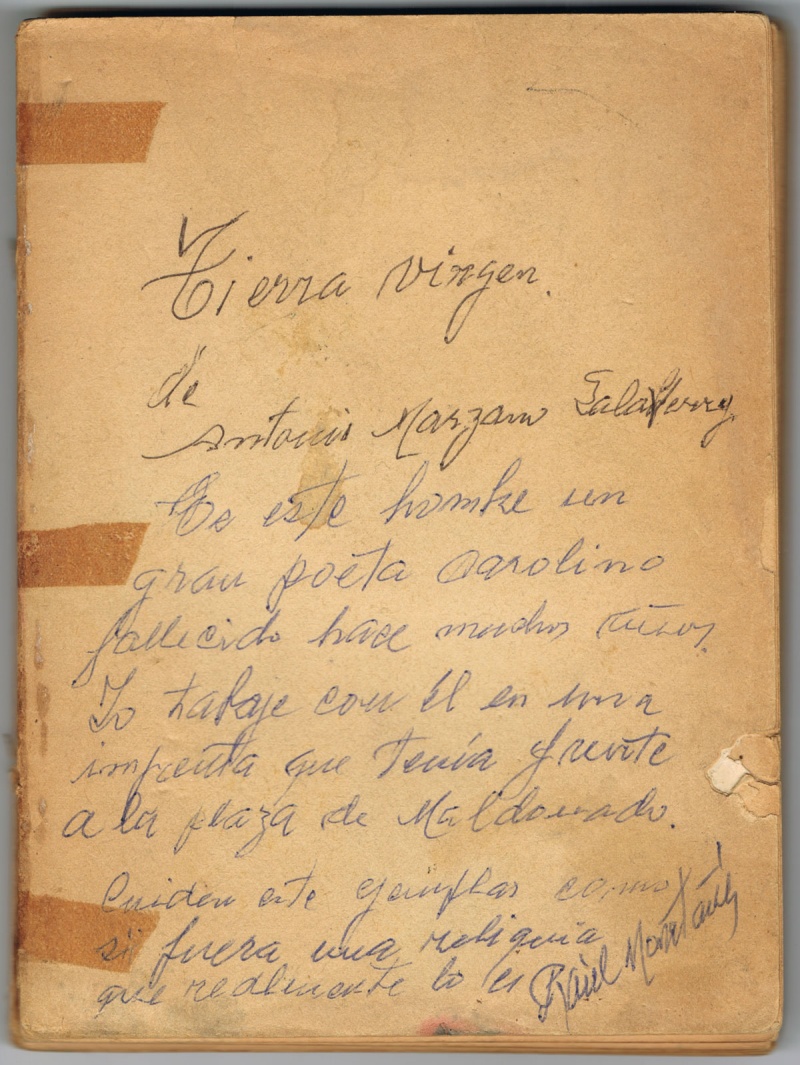 Tierra virgen.
de
Antonio Marzano
Es este hombre un
gran poeta Carolino
fallecido hace muchos años.
Yo trabaje con Él en una
imprenta que tenía frente
a la plaza de Maldonado.
Cuiden este ejemplar como
si fuera una reliquia
que realmente lo es
Raúl